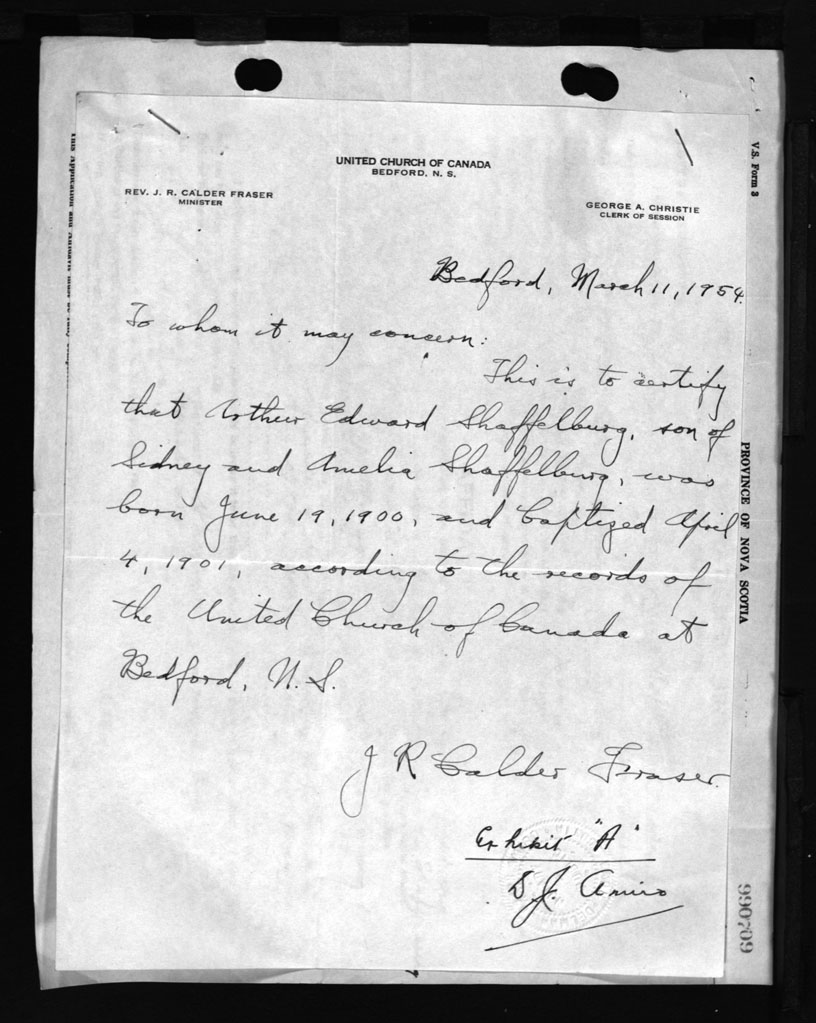 UNITED CHURCH OF CANADA
BEDFORD, N. S.
REV. J. R. CALDER FRASER
MINISTER
GEORGE A. CHRISTIE
CLERK OF SESSION
V.S. Form 3
Bedford, March 11, 1954.
To whom it may concern:
This is to certify
that Arthur Edward Shaffelburg, son of
Sidney and Amelia Shaffelburg, was
born June 19, 1900, and baptized April
4, 1901, according to the records of
the United Church of Canada at
Bedford, N. S.
J R Calder Fraser.
Exhibit "A"
S J. Amiro
PROVINCE OF NOVA SCOTIA
990709